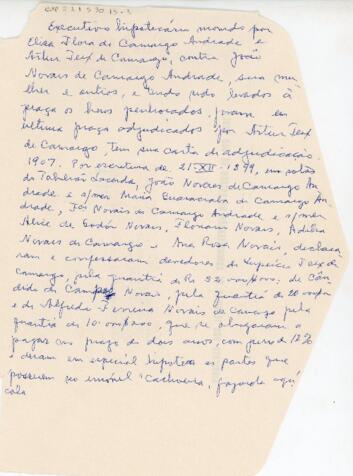 Executivo hipotecário movido por
Elisa Flora de Camargo Andrade e
Artur Teix de Camargo, contra João
Novais de Camargo Andrade, sua mu-
lher e outros, e tendo sido levados à
praça os bens penhorados, foram em
última praça adjudicados por Artur Teix
de Camargo tem sua carta de adjudicação.
1907. Por escritura de 21-XII-1899, em notas
do Tabelião Lacerda, João Novais de Camargo An
drade e s/mer Maria de Camargo An-
drade, Novais de Camargo Andrade e s/mer
Alice de Godói Novais, Floriano Novais,
Novais de Camargo e Ana Rosa Novais, declara-
ram e confessaram devedores de Teix de
Camargo, pela quantia de Rs 52 de Cân-
dido de Novais, pela quantia de 20
e de Alfredo Ferreira Novais de Camargo pela
quantia de 10 que se obrigaram a
pagar no prazo de dois anos, com juros de 12%
e deram em especial hipoteca as partes que
possuem no imóvel "Cachoeira, fazenda aqui